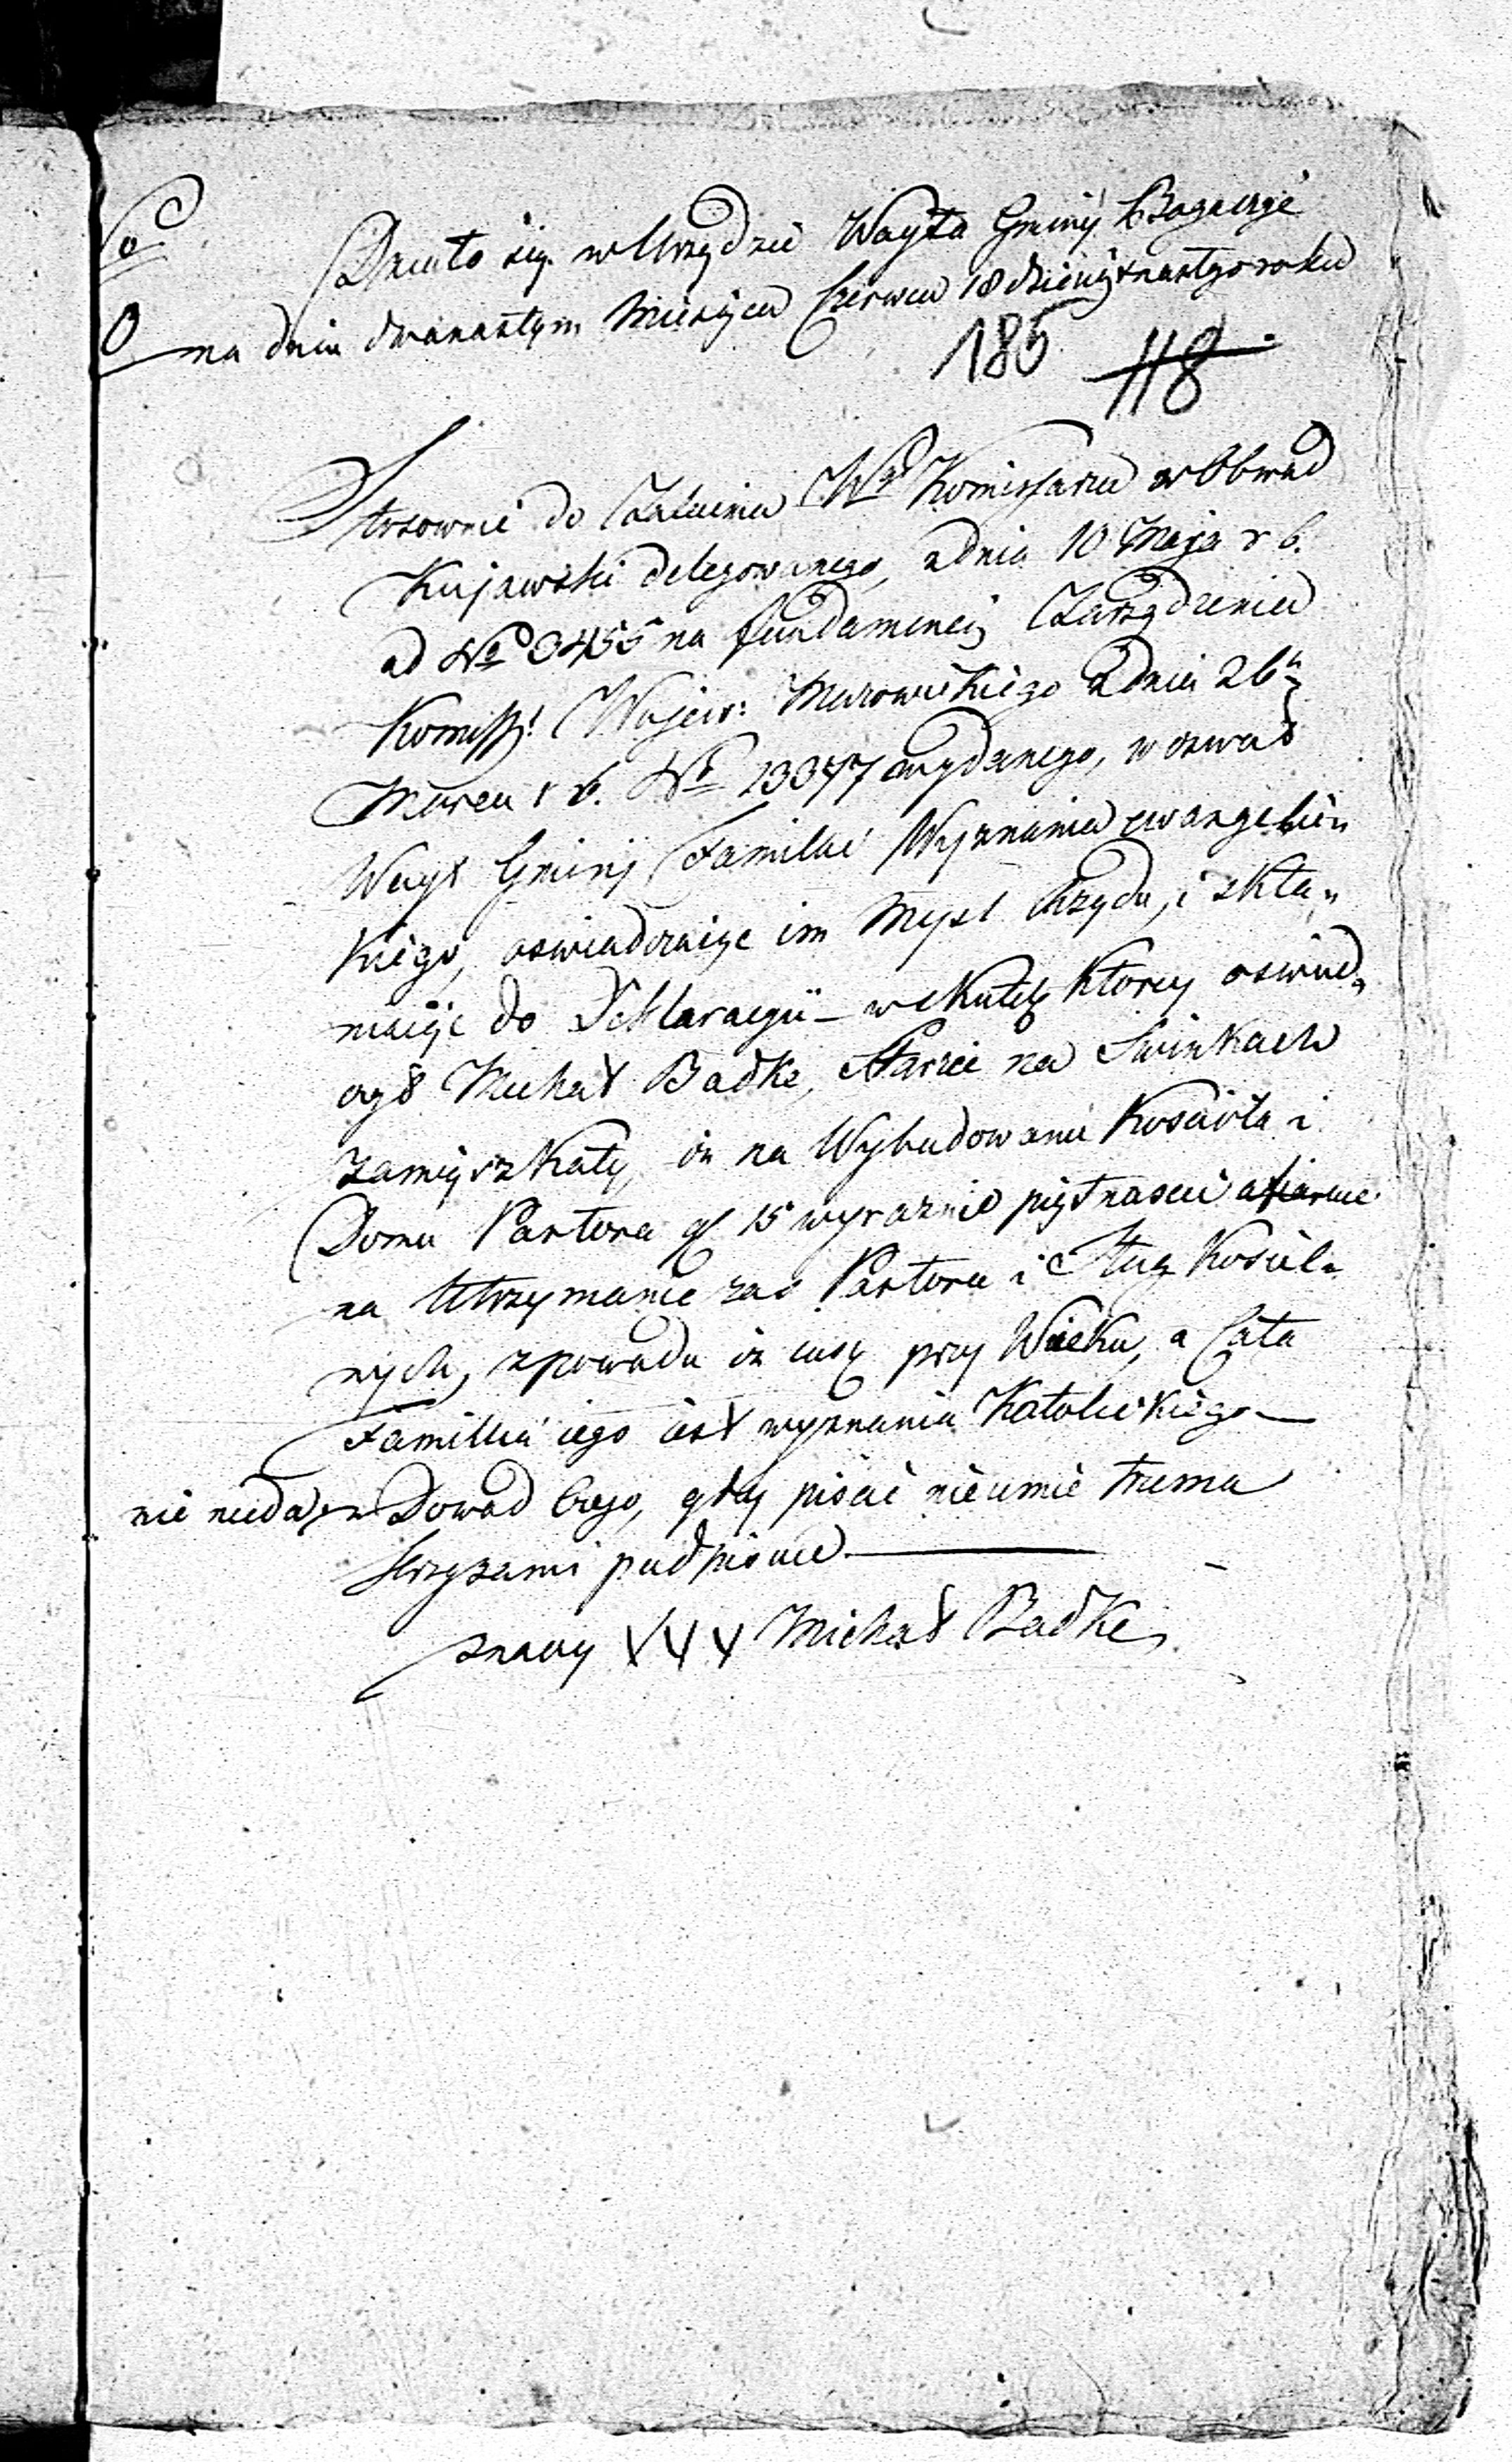 No
Działo się w Urzędzie Wayta Gminy
na dniu dwanastym Miesiąca Czerwca 18 dziewiętnastego roku
185 118
Stosownie do Zalecenia Wgo Komissarza w Obwod
Kujawski delegowanego, z dnia 10 Maja r b.
ad No 3455 na fundamencie Zarządzenia
Kommissyi Wojew: Mazowieckiego z dnia 26
Marca r b. No 13347 wydanego, wezwał
Wayt Gminy Familie Wyznania ewangelic„
kiego, oswiadczaiąc im Mysl Rządu, i skła„
niaiąc do Deklaracyii – w skutek ktorey oswiad„
czył Michał Badke, na
zamięszkały, iż na Wybudowanie Koscioła i
Domu Pastora zł 15 wyraznie piętnascie ofiaruie
na Utrzymanie zas Pastora i Sług Kosciel„
nych, z powodu iż iusz przy Wieku, a Cała
Familia iego iest wyznania Katolickiego –
nic nieda, – w Dowod czego, gdy pisać nieumie trzema
krzyżami podpisuie
znaky XXX Michał Badke